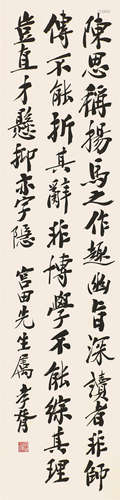 陳思稱揚馬之作趣幽旨深讀者非師
傳不能折其辭非博學不能綜其理
豈直才懸抑亦字隱 宮田先生屬 孝胥